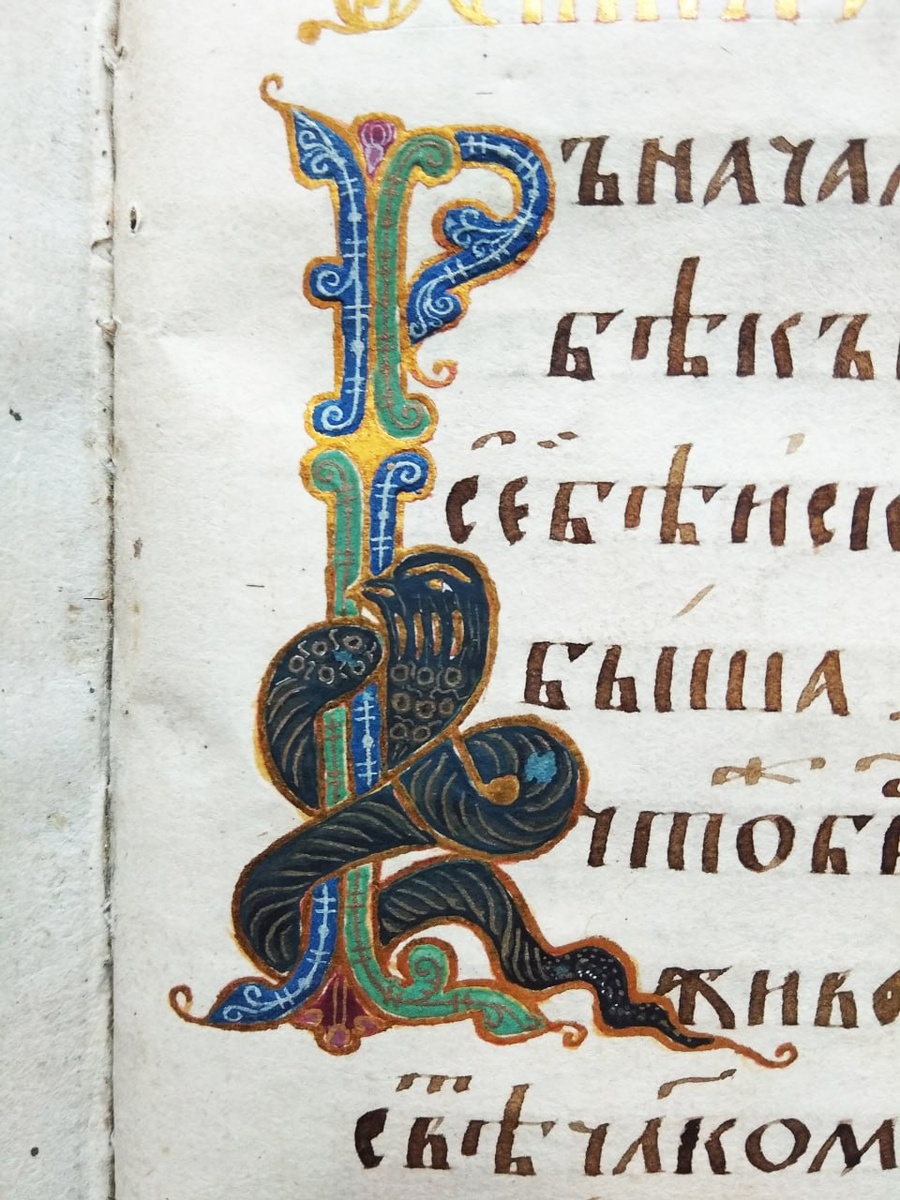 ВЪНАЧАЛ
БѢКЪ
СЕБѢИСК
БЫША
ЧТОБ
ЖИВО
СВѢⷮЧЛ҃КОМ